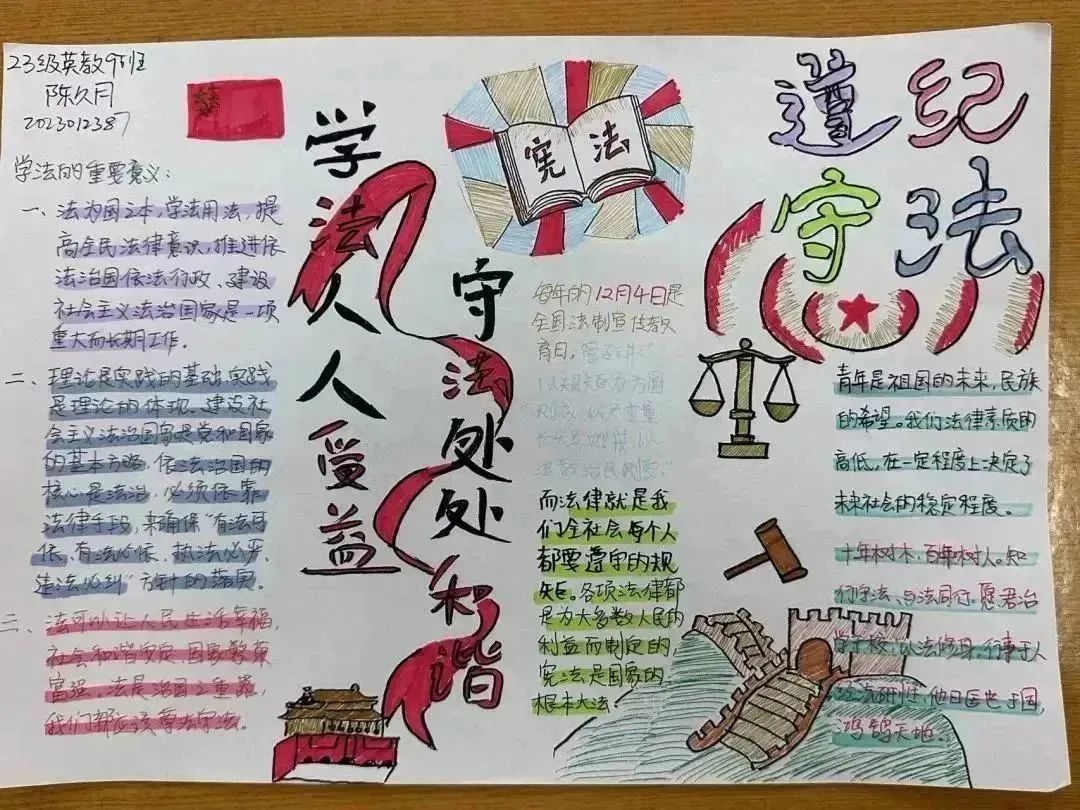 23级英教9班
陈久月
2023012387
学法的重要意义：
一、法为国之本，学法用法，提
高全民法律意识，推进依
法治国依法行政、建设
社会主义法治国家是一项
重大而长期工作。
二、理论是实践的基础，实践
是理论的体现。建设社
会主义法治国家是党和国家
的基本方略，依法治国的
核心是法治，必须依靠
法律手段，来确保“有法可
依、有法必依、执法必严、
违法必纠”方针的落实。
三、法可以让人民生活幸福，
社会和谐安定，国家繁荣
富强。法是治国之重器，
我们都应该尊法守法。
学法人人受益
守法处处和谐
宪法
每年的12月4日是
全国法制宣传教
育日。
而法律就是我
们全社会每个人
都要遵守的规
矩。各项法律都
是为大多数人民的
利益而制定的，
宪法是国家的
根本大法！
遵纪
守法
青年是祖国的未来，民族
的希望。我们法律素质的
高低，在一定程度上决定了
未来社会的稳定程度。
十年树木，百年树人。知
们学法、与法同行。愿君治
学于校，以法修身，行事于人
他日医
国，
鸿鹄天地。